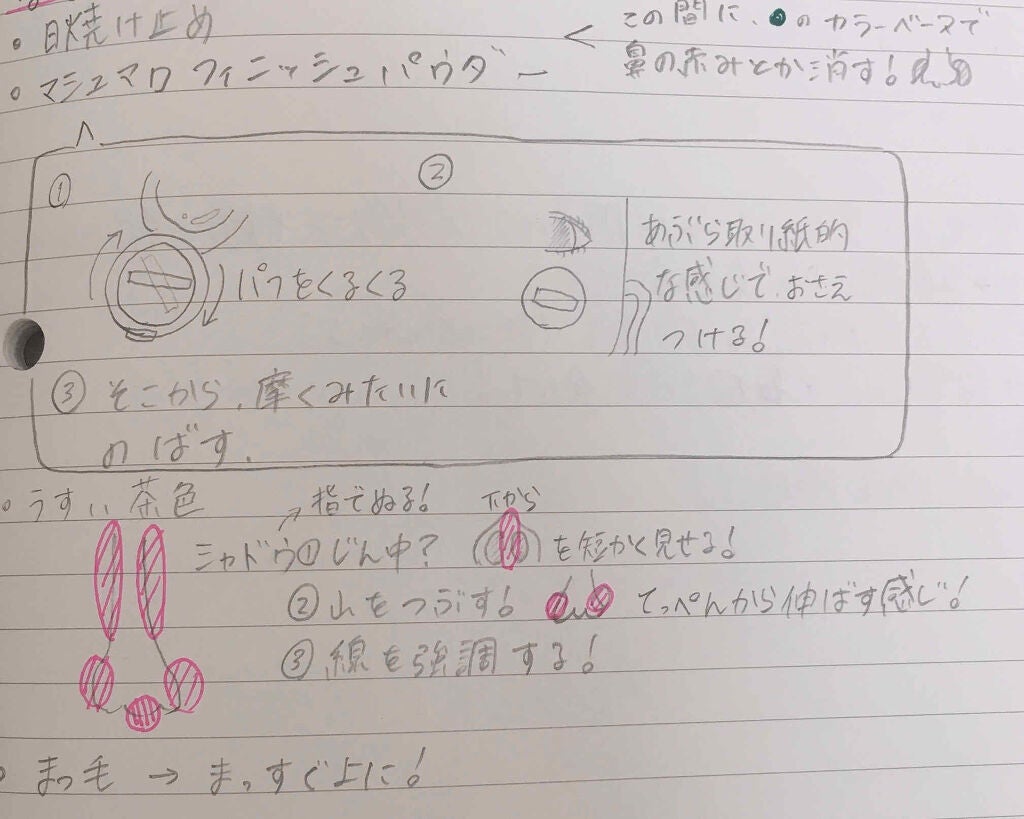 ・日焼け止め
・マシュマロフィニッシュパウダー
< この間に、●のカラーベースで
鼻の赤みとか消す!
①
パフをくるくる
②
あぶら取り紙的
な感じで、おさえ
つける!
③そこから、摩くみたいに
のばす.
・うすい茶色
→指でぬる!
下から
シャドウ①じん中? を短かく見せる!
②山をつぶす! てっぺんから伸ばす感じ!
③線を強調する!
・まつ毛 → まっすぐ上に!